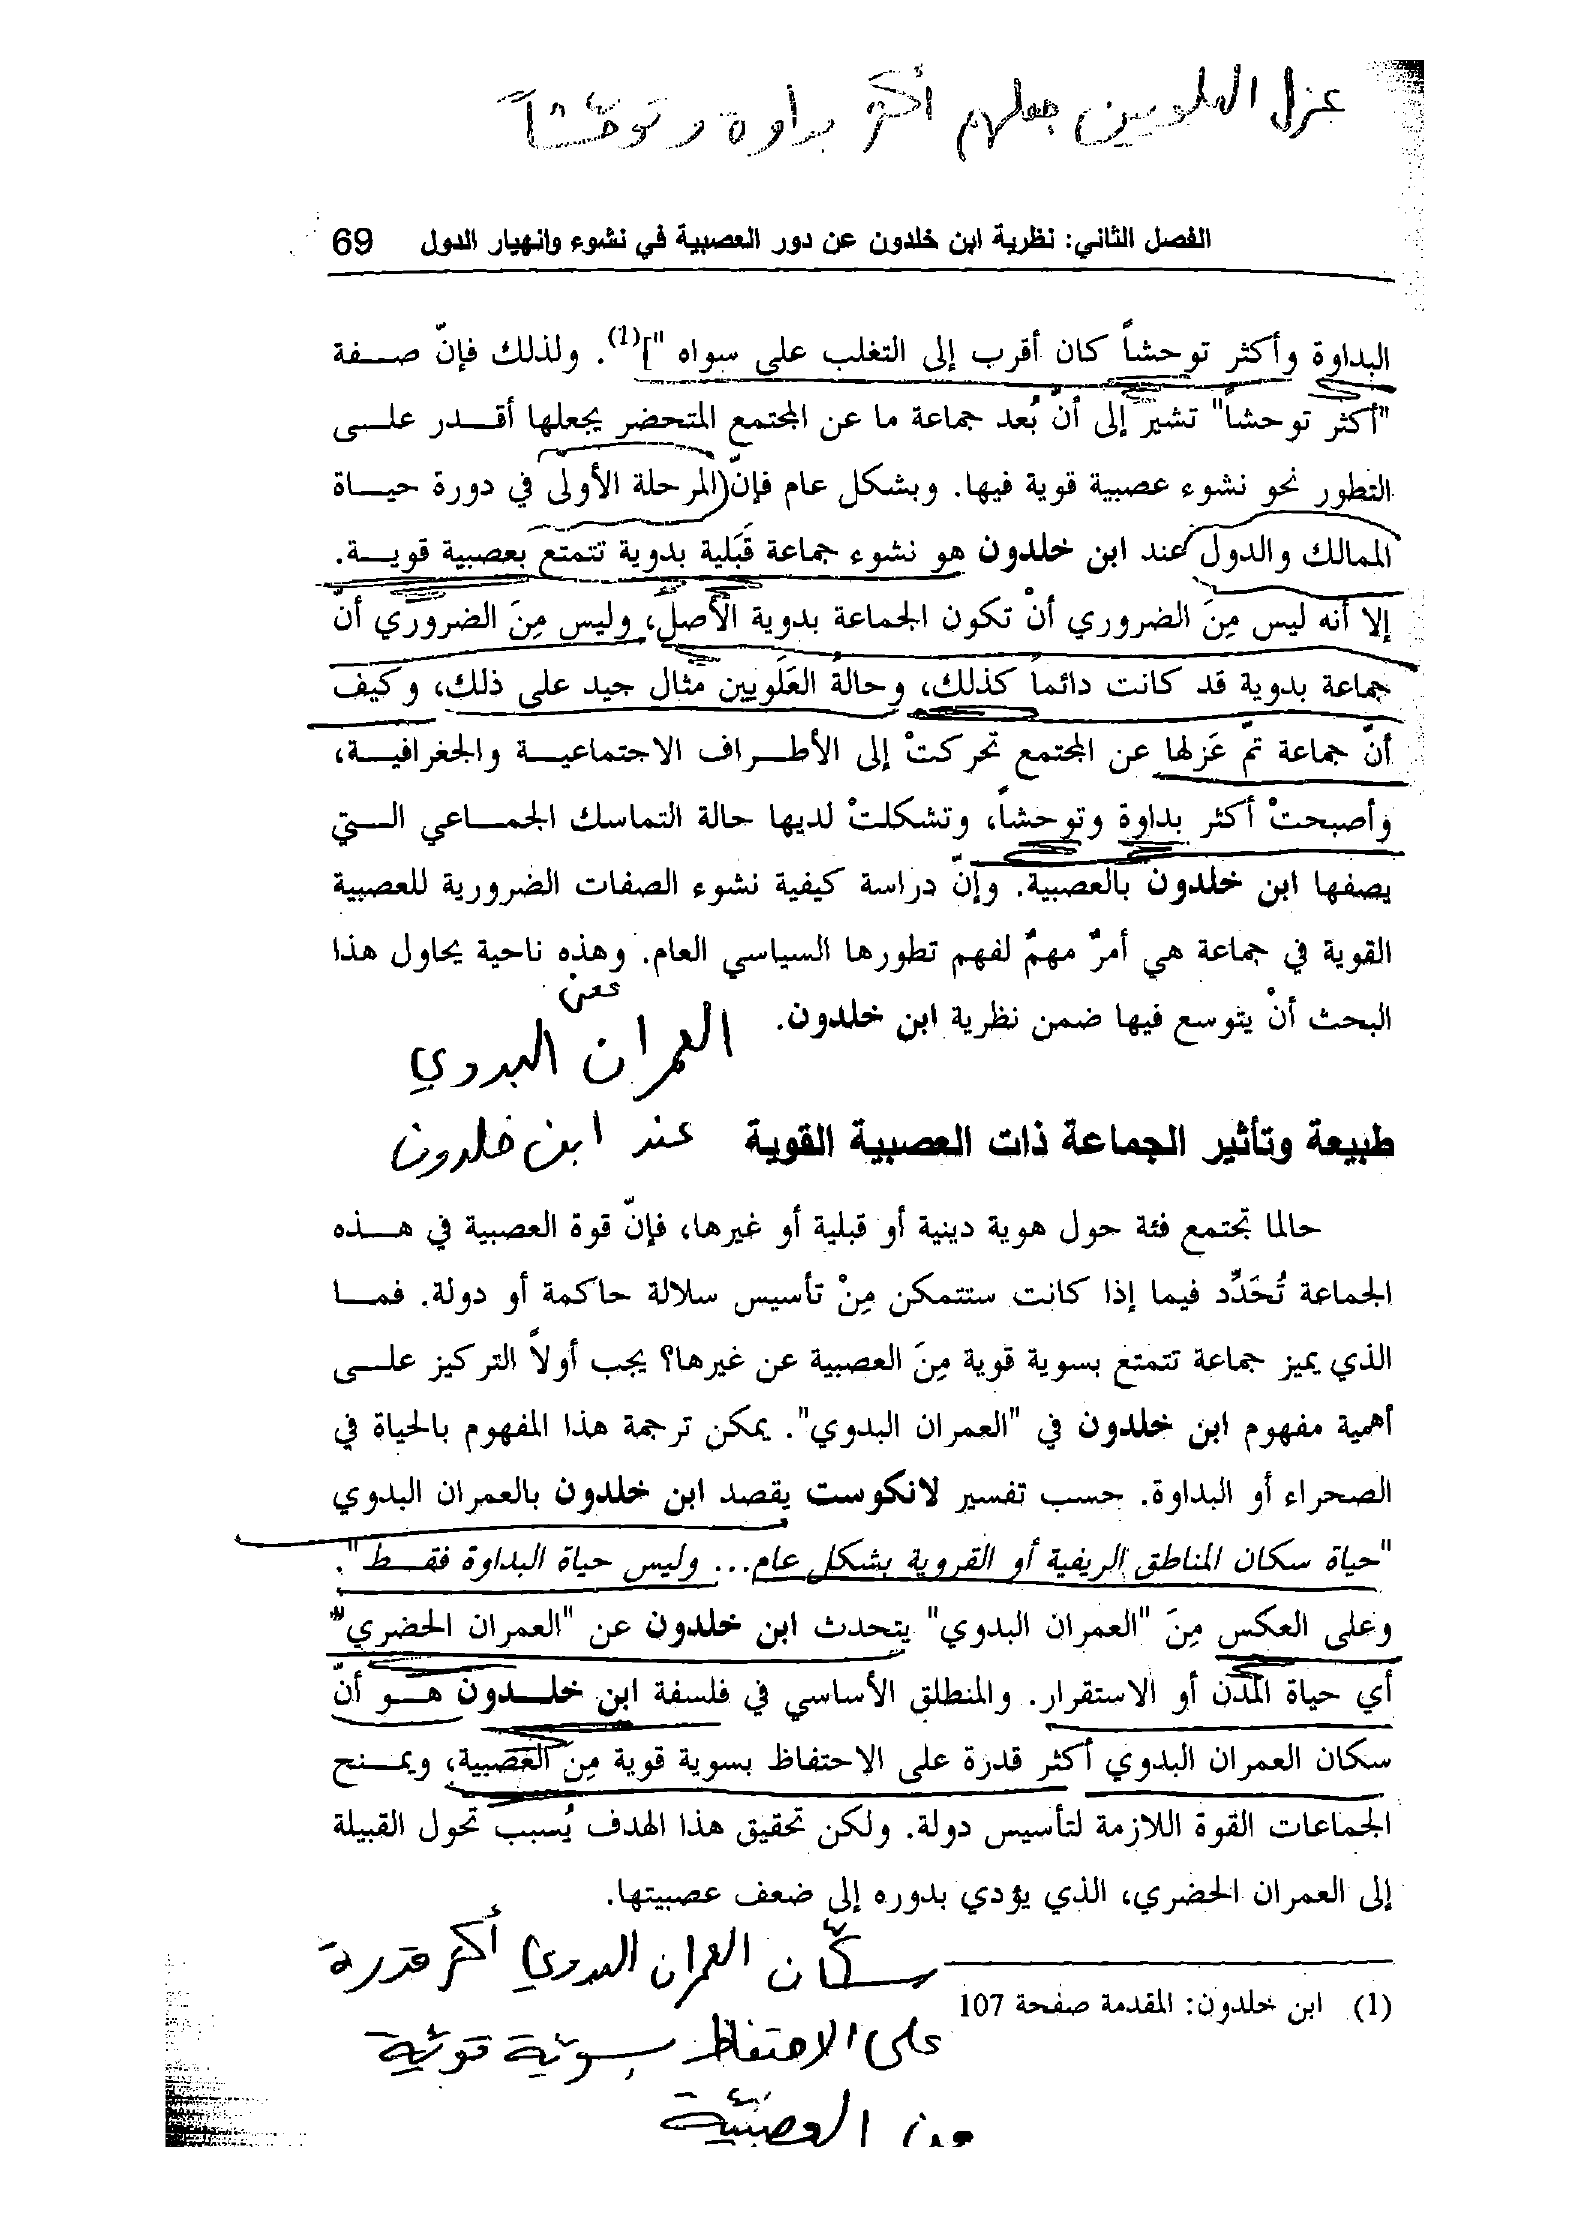 عزل العلويين جعلهم أكثر بداوة وتوحّشاً
الفصل الثاني: نظرية ابن خلدون عن دور العصبية في نشوء وانهيار الدول 69
البداوة وأكثر توحشاً كان أقرب إلى التغلب على سواه "](1). ولذلك فإنّ صفة
"أكثر توحشاً" تشير إلى أنّ بُعد جماعة ما عن المجتمع المتحضر يجعلها أقدر على
التطور نحو نشوء عصبية قوية فيها. وبشكل عام فإنّ المرحلة الأولى في دورة حياة
الممالك والدول عند ابن خلدون هو نشوء جماعة قَبَلية بدوية تتمتع بعصبية قوية.
إلا أنه ليس مِنَ الضروري أنْ تكون الجماعة بدوية الأصل، وليس مِنَ الضروري أنّ
جماعة بدوية قد كانت دائماً كذلك، وحالةُ العَلَويين مثال جيد على ذلك، وكيف
أنّ جماعة تمّ عَزلها عن المجتمع تحركتْ إلى الأطراف الاجتماعية والجغرافية،
وأصبحتْ أكثر بداوة وتوحشاً، وتشكلتْ لديها حالة التماسك الجماعي التي
يصفها ابن خلدون بالعصبية. وإنّ دراسة كيفية نشوء الصفات الضرورية للعصبية
القوية في جماعة هي أمرٌ مهمٌ لفهم تطورها السياسي العام. وهذه ناحية يحاول هذا
البحث أنْ يتوسع فيها ضمن نظرية ابن خلدون.
معنى
العمران البدوي
عند ابن خلدون
طبيعة وتأثير الجماعة ذات العصبية القوية
حالما تجتمع فئة حول هوية دينية أو قبلية أو غيرها، فإنّ قوة العصبية في هذه
الجماعة تُحَدِّد فيما إذا كانت ستتمكن مِنْ تأسيس سلالة حاكمة أو دولة. فما
الذي يميز جماعة تتمتع بسوية قوية مِنَ العصبية عن غيرها؟ يجب أولاً التركيز على
أهمية مفهوم ابن خلدون في "العمران البدوي". يمكن ترجمة هذا المفهوم بالحياة في
الصحراء أو البداوة. حسب تفسير لانكوست يقصد ابن خلدون بالعمران البدوي
"حياة سكان المناطق الريفية أو القروية بشكل عام... وليس حياة البداوة فقط".
وعلى العكس مِنَ "العمران البدوي" يتحدث ابن خلدون عن "العمران الحضري"
أي حياة المُدن أو الاستقرار. والمنطلق الأساسي في فلسفة ابن خلدون هو أنّ
سكان العمران البدوي أكثر قدرة على الاحتفاظ بسوية قوية مِنَ العصبية، ويمنح
الجماعات القوة اللازمة لتأسيس دولة. ولكن تحقيق هذا الهدف يُسبب تحول القبيلة
إلى العمران الحضري، الذي يؤدي بدوره إلى ضعف عصبيتها.
(1) ابن خلدون: المقدمة صفحة 107
سكّان العمران البدوي أكثر قدرة
على الاحتفاظ بسويّة قويّة
من العصبيّة